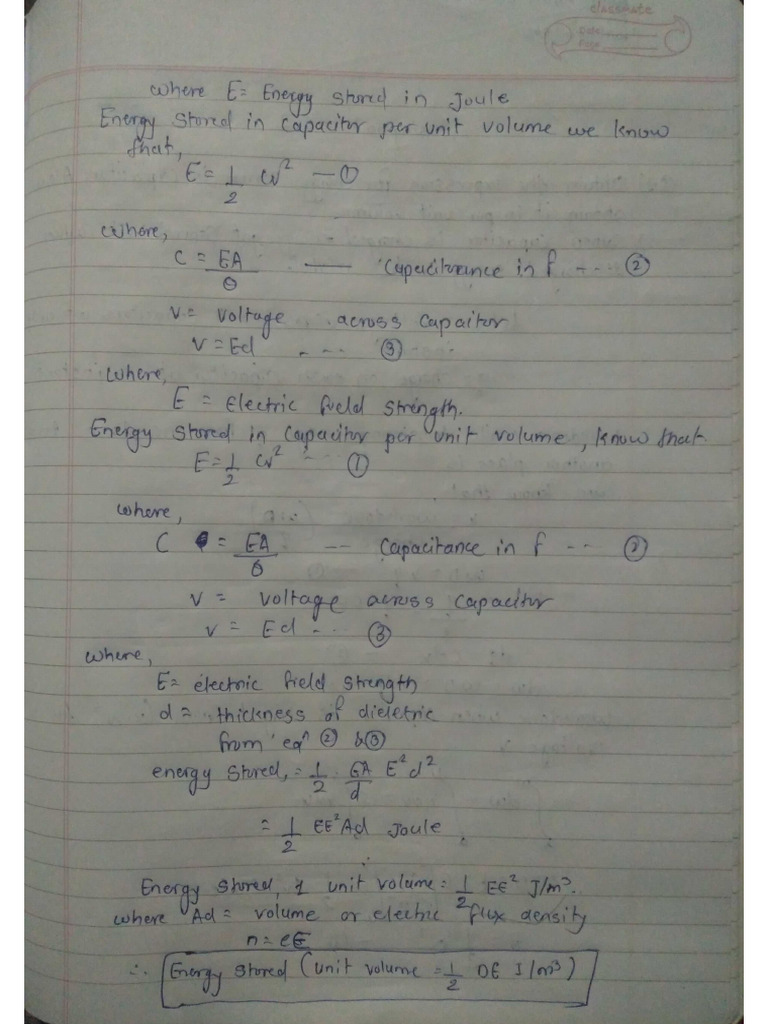 classmate
Date
Page
where E = Energy stored in Joule
Energy stored in capacitor per unit volume we know
that,
E = 1/2 cv² — ①
where,
C = EA/θ —— Capacitorance in f ---- ②
v = voltage across capaitor
v = Ed ---- ③
where,
E = electric field strength.
Energy stored in capacitor per unit volume, know that
E = 1/2 cv² -- ①
where,
C = EA/θ -- Capacitance in f -- ②
v = voltage across capacitor
v = Ed --- ③
where,
E = electric field strength
d = thickness of dieletric
from eqⁿ ② & ③
energy stored, = 1/2 . EA/d E²d²
= 1/2 EE²Ad Joule
Energy stored, 1 unit volume = 1/2 EE² J/m³.
where Ad = volume or electric flux density
n = eE
∴ Energy stored (unit volume = 1/2 DE J/m³)